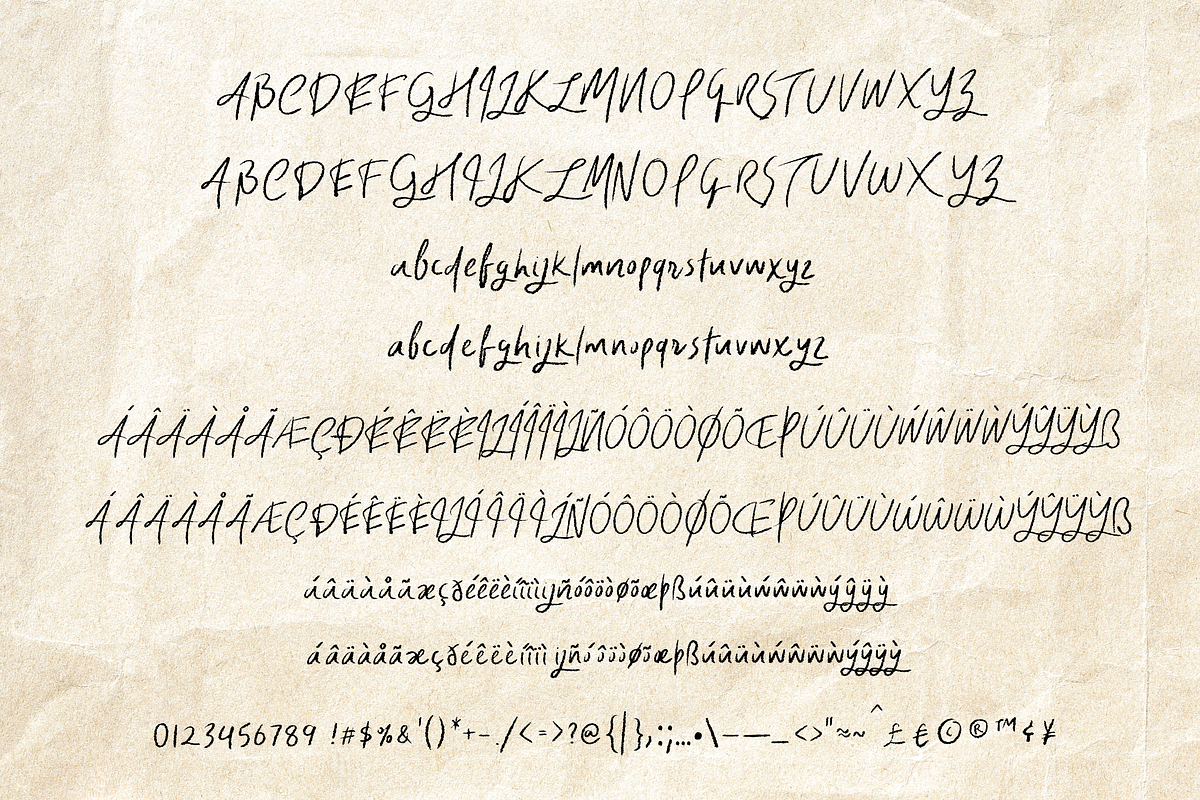 ABCDEFGHIJKLMNOPQRSTUVWXYZ
ABCDEFGHIJKLMNOPQRSTUVWXYZ
abcdefghijklmnopqrstuvwxyz
abcdefghijklmnopqrstuvwxyz
ÁÂÄÀÅÃÆÇÐÉÊËÈIJÍÎÏÌIJÑÓÔÖÒØÕŒÞÚÛÜÙẂŴẄẀÝŶŸỲß
ÁÂÄÀÅÃÆÇÐÉÊËÈIJÍÎÏÌIJÑÓÔÖÒØÕŒÞÚÛÜÙẂŴẄẀÝŶŸỲß
áâäàåãæçðéêëèíîïìijñóôöòøõœþßúûüùẃŵẅẁýŷÿỳ
áâäàåãæçðéêëèíîïì ijñóôöòøõœþßúûüùẃŵẅẁýŷÿỳ
0123456789 !#$%&'()*+-./<=>?@{|},:;…•\–—_<>"≈~^£€©®™¢¥